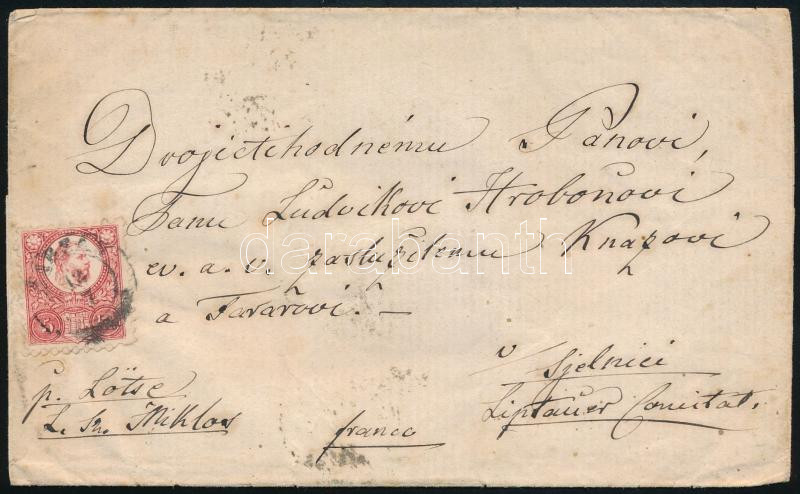 Dvojictihodnému Pánovi,
Panu Ludvikovi Hroboňovi
ev. a. v. zaslužilemu Knazovi
a Fararovi. —
v Sjelnici
Liptauer Comitat.
p. Lötse
L. Sn. Miklos
franco
darabanth